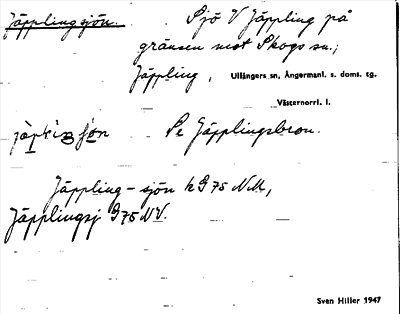 Jäpplingsjön. Sjö V Jäppling på
gränsen mot Skogs sn.;
Jäppling, Ullångers sn, Ångermanl. s. doms. tg.
Västernorrl. l.
Se Jäpplingsbron.
Jäppling-sjön kG 75 NM,
Jäpplingsj G75NV.
Sven Hiller 1947